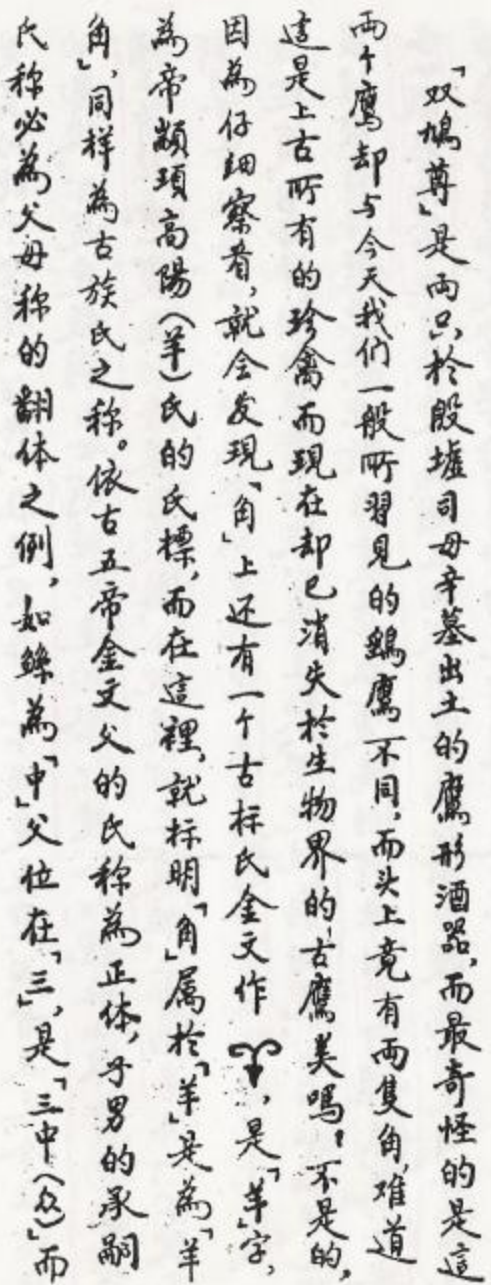 「双鳩尊」是両只於殷墟司母辛墓出土的鷹形酒器，而最奇怪的是這
両个鷹却与今天我们一般所習見的鷂鷹不同，而头上竟有両隻角，难道
這是上古所有的珍禽而現在却已消失於生物界的古鷹类嗎？不是的，
因為仔细察看，就会发現「角」上还有一个古标氏金文作，是「羊」字，
為帝顓頊高陽（羊）氏的氏標，而在這裡，就标明「角」属於「羊」是為「羊
角」，同样為古族氏之称。依古五帝金文父的氏称為正体，子男的承嗣
氏称必為父母称的翻体之例，如鯀為「中」父位在「三」，是「三中（众）」而